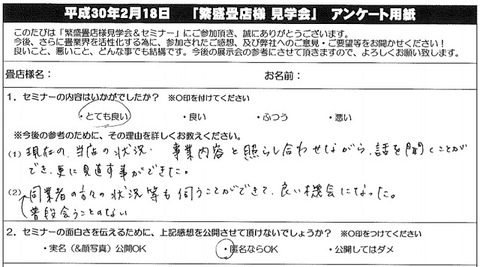 平成30年2月18日　「繁盛畳店様 見学会」　アンケート用紙
このたびは「繁盛畳店様見学会&セミナー」にご参加頂き、誠にありがとうございます。
今後、さらに畳業界を活性化する為に、参加されたご感想、及び弊社へのご意見・ご要望等をお聞かせください！
良いこと、悪いこと、どんな事でも結構です。今後の展示会の参考にさせて頂きますので、よろしくお願い致します。
畳店様名：　　お名前：
1．セミナーの内容はいかがでしたか？　※○印を付けてください
・とても良い　・良い　・ふつう　・悪い
※今後の参考のために、その理由を詳しくお教えください。
(1) 現在の、当店の状況・事業内容と照らし合わせながら、話を聞くことが
でき、更に見直す事ができた。
(2) 同業者の方々の状況等も伺うことができて、良い機会になった。
普段会うことのない
2．セミナーの面白さを伝えるために、上記感想を公開させて頂けないでしょうか？　※○印をつけてください
・実名（&顔写真）公開OK　・匿名ならOK　・公開してはダメ